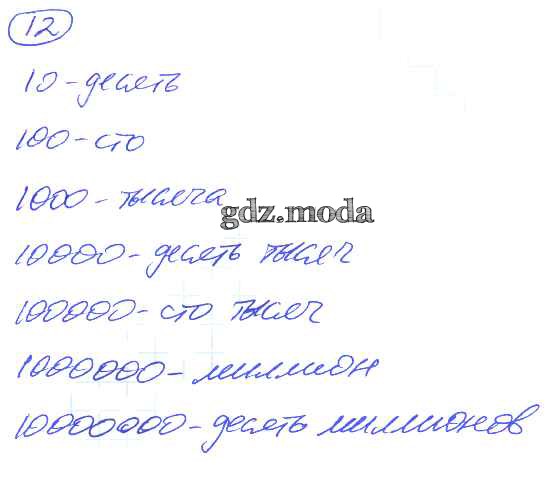 12
10 - десять
100 - сто
1000 - тысяча
gdz.moda
10000 - десять тысяч
100000 - сто тысяч
1000000 - миллион
10000000 - десять миллионов